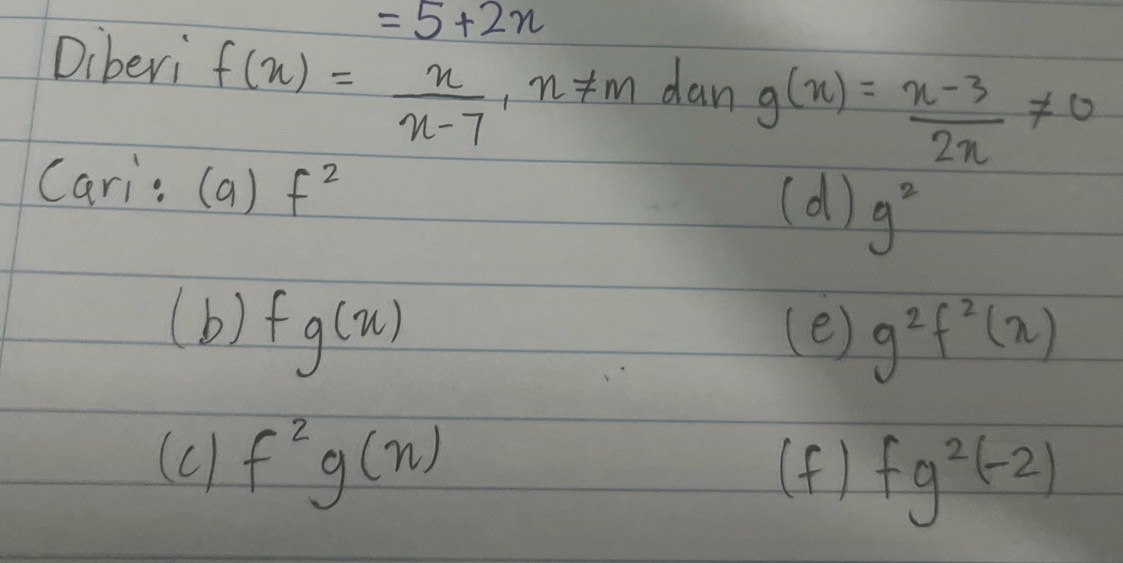 = 5 + 2x
Diberi f(x) = x/(x-7), x ≠ m dan g(x) = (x-3)/(2x) ≠ 0
Cari: (a) f² (d) g²
(b) fg(x) (e) g²f²(x)
(c) f²g(x) (f) fg²(-2)